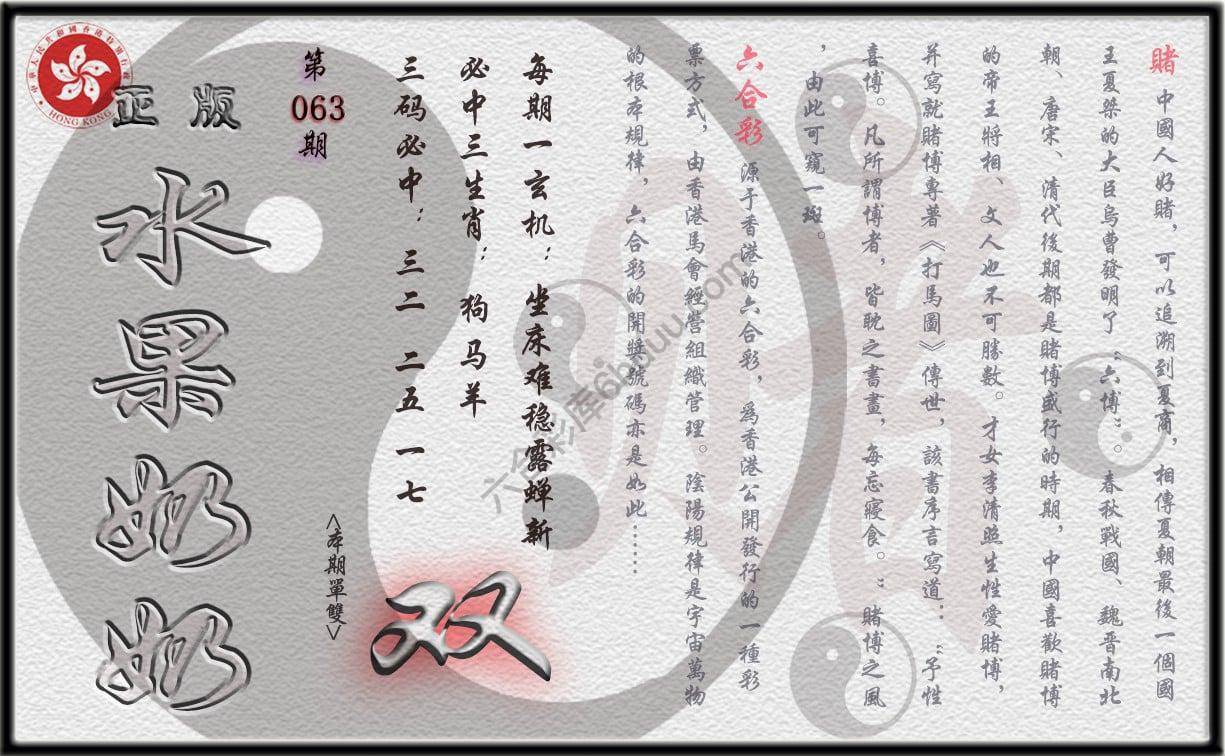 賭 中國人好賭，可以追溯到夏商，相傳夏朝最後一個國
王夏桀的大臣烏曹發明了“六博”。春秋戰國、魏晋南北
朝、唐宋、清代後期都是賭博盛行的時期，中國喜歡賭博
的帝王將相、文人也不可勝數。才女李清照生性愛賭博，
并寫就賭博專著《打馬圖》傳世，該書序言寫道：“予性
喜博。凡所謂博者，皆耽之書畫，每忘寢食。”賭博之風
，由此可窺一斑。
六合彩 源于香港的六合彩，爲香港公開發行的一種彩
票方式，由香港馬會經營組織管理。陰陽規律是宇宙萬物
的根本規律，六合彩的開獎號碼亦是如此……
每期一玄机：坐床难稳露蝉新
必中三生肖：狗马羊
三码必中：三二 二五 一七
第
063
期
<本期單雙>
双
正版
水果奶奶
中華人民共和國香港特別行政區
HONG KONG
六合彩库6bbuu.com